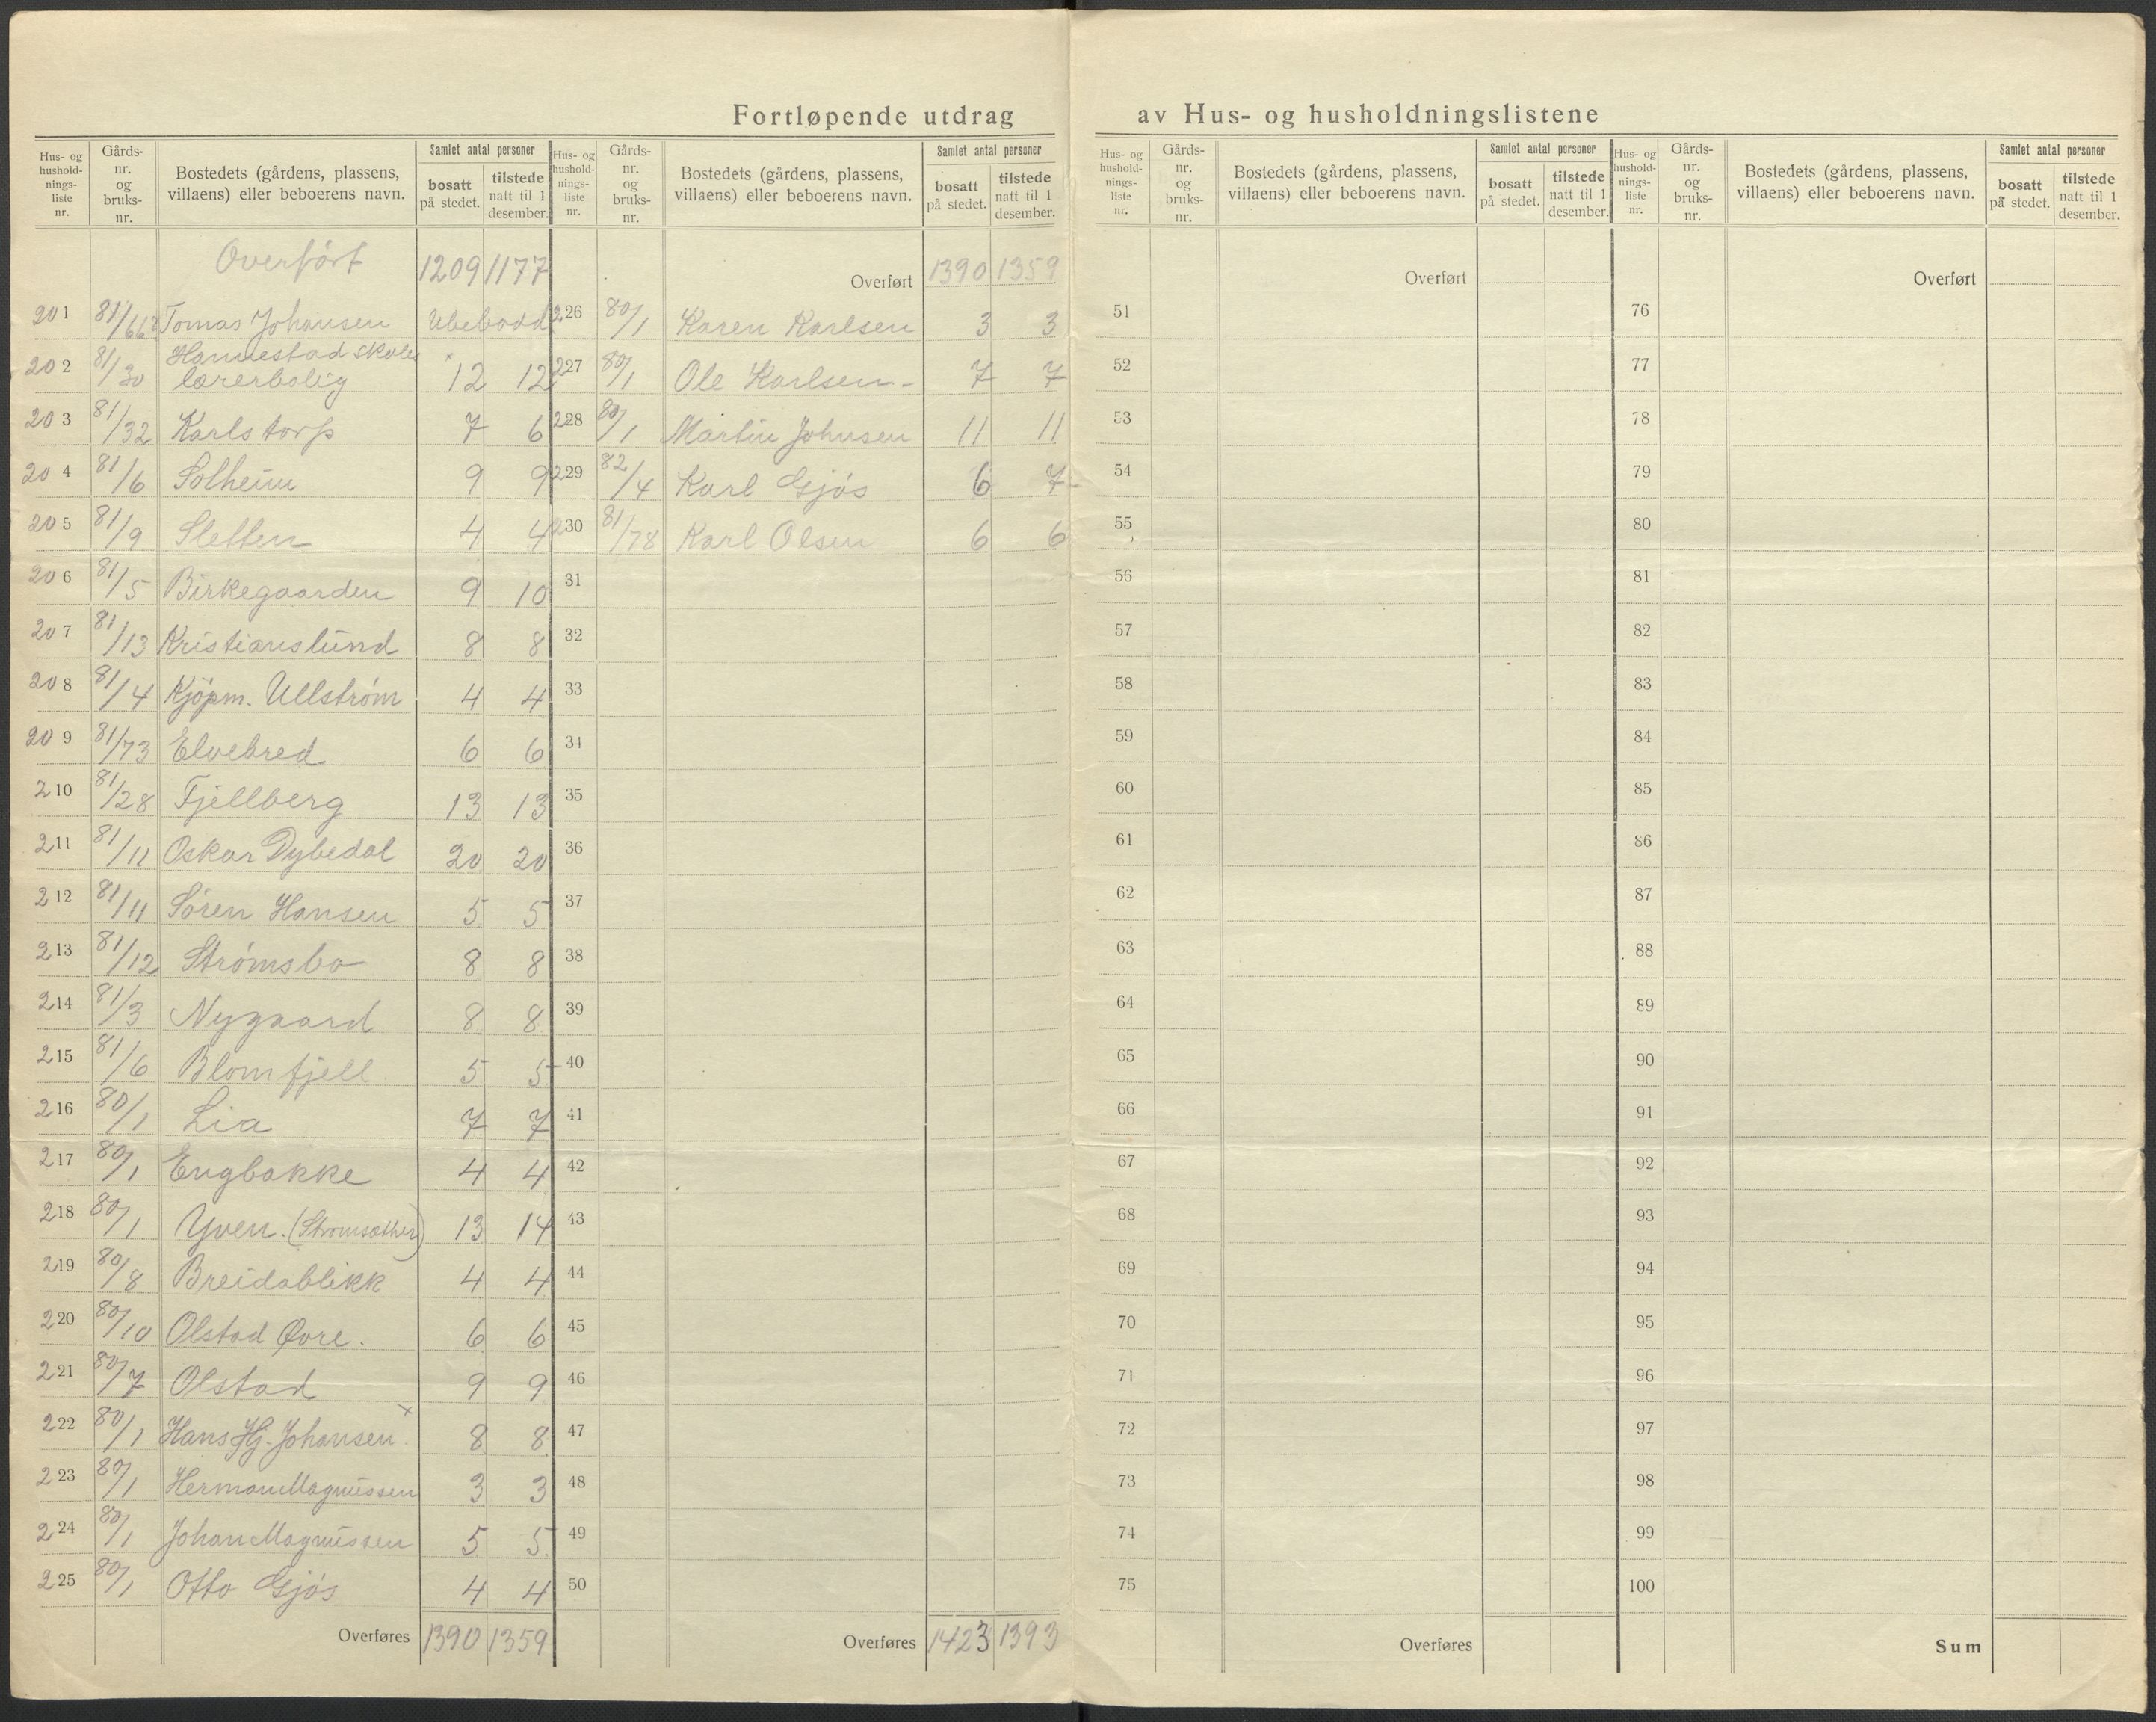 Fortløpende utdrag av Hus- og husholdningslistene
Hus- og hushold-nings-liste nr. Gårds-nr. og bruks-nr. Bostedets (gårdens, plassens, villaens) eller beboerens navn. Samlet antal personer bosatt på stedet. tilstede natt til 1 desember.
Overført 1209 1177
201 81/66 Tomas Johansen Ubebodd
202 81/30 Hannestad skoles lærerbolig 12 12
203 81/32 Karlstorp 7 6
204 81/6 Solheim 9 9
205 81/9 Sletten 4 4
206 81/5 Birkegaarden 9 10
207 81/13 Kristianslund 8 8
208 81/4 Kjøpm. Ullstrøm 4 4
209 81/73 Elvebred 6 6
210 81/28 Fjellberg 13 13
211 81/11 Oskar Dybedal 20 20
212 81/11 Søren Hansen 5 5
213 81/12 Strømsbo 8 8
214 81/3 Nygaard 8 8
215 81/6 Blomfjell 5 5
216 80/1 Lia 7 7
217 80/1 Engbakke 4 4
218 80/1 Yven. (Strømsæther) 13 14
219 80/8 Breidablikk 4 4
220 80/10 Olstad Øvre. 6 6
221 80/7 Olstad 9 9
222 80/1 Hans Hj. Johansen x 8 8
223 80/1 Herman Magnussen 3 3
224 80/1 Johan Magnussen 5 5
225 80/1 Otto Gjøs 4 4
Overføres 1390 1359
Hus- og hushold-nings-liste nr. Gårds-nr. og bruks-nr. Bostedets (gårdens, plassens, villaens) eller beboerens navn. Samlet antal personer bosatt på stedet. tilstede natt til 1 desember.
Overført 1390 1359
226 80/1 Karen Karlsen 3 3
227 80/1 Ole Karlsen 7 7
228 80/1 Martin Johnsen 11 11
229 82/4 Karl Gjøs 6 7
230 81/78 Karl Olsen 6 6
31
32
33
34
35
36
37
38
39
40
41
42
43
44
45
46
47
48
49
50
Overføres 1423 1393
Hus- og hushold-nings-liste nr. Gårds-nr. og bruks-nr. Bostedets (gårdens, plassens, villaens) eller beboerens navn. Samlet antal personer bosatt på stedet. tilstede natt til 1 desember.
Overført
51
52
53
54
55
56
57
58
59
60
61
62
63
64
65
66
67
68
69
70
71
72
73
74
75
Overføres
Hus- og hushold-nings-liste nr. Gårds-nr. og bruks-nr. Bostedets (gårdens, plassens, villaens) eller beboerens navn. Samlet antal personer bosatt på stedet. tilstede natt til 1 desember.
Overført
76
77
78
79
80
81
82
83
84
85
86
87
88
89
90
91
92
93
94
95
96
97
98
99
100
Sum